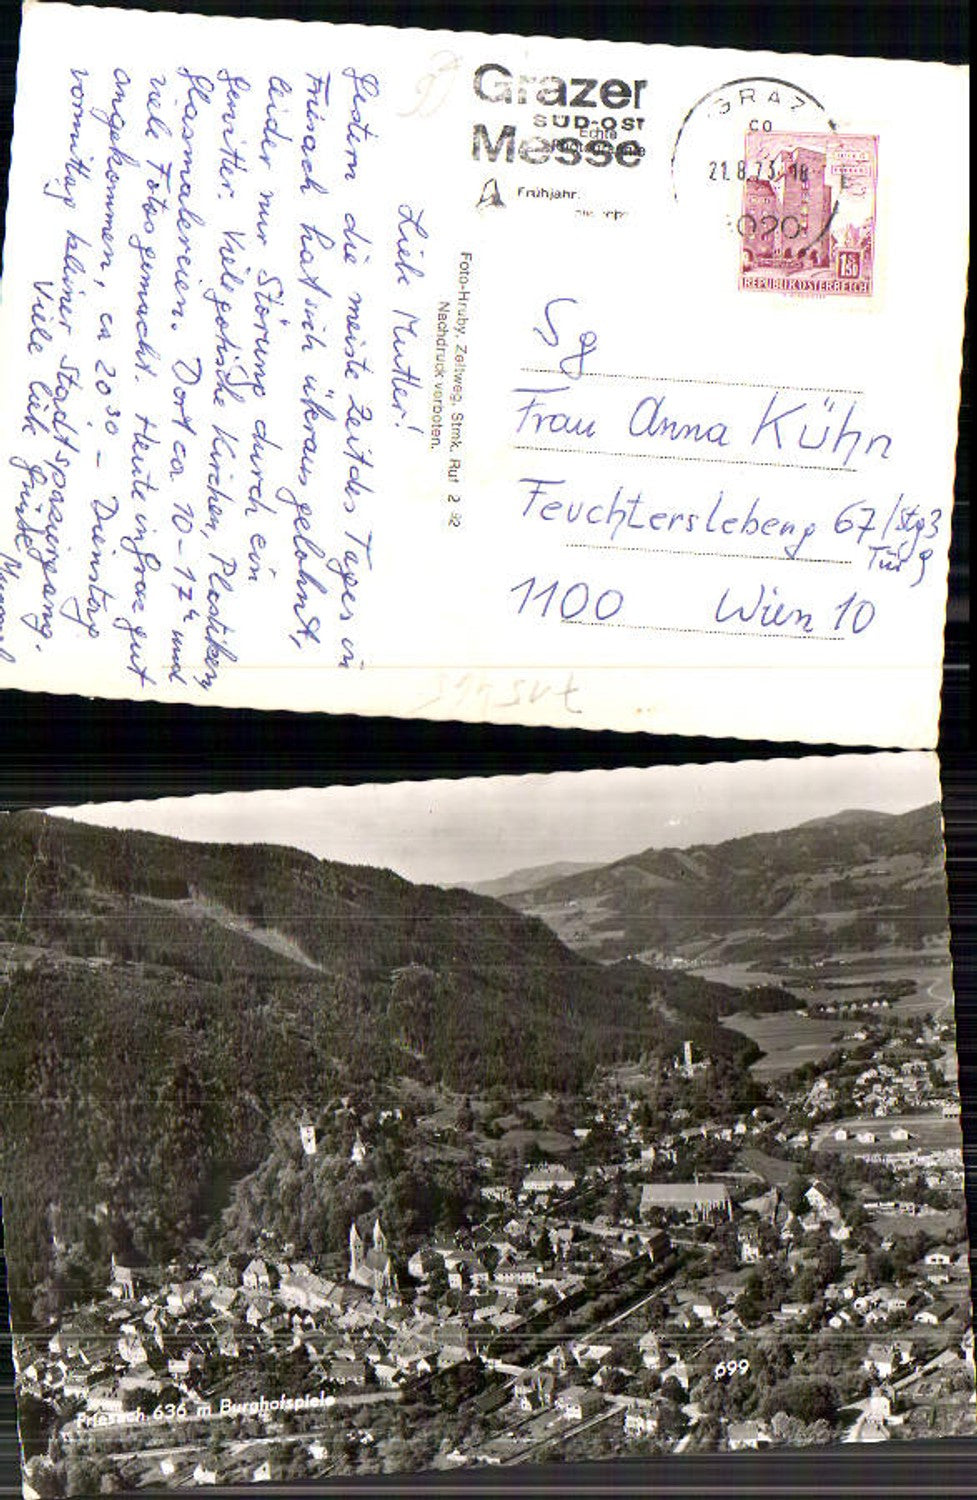 Grazer
SÜD-OST
Messe
Echte
Frühjahr:
GRAZ
CO
21.8.73-18
8020
1S50
REPUBLIK ÖSTERREICH
Liebe Mutter!
Gestern die meiste Zeit des Tages in
Friesach hat sich überaus gelohnt,
leider nur Störung durch ein
Gewitter. Viele gotische Kirchen, Plastiken,
Glasmalereien. Dort ca 10-17h und
viele Fotos gemacht. Heute in Graz gut
angekommen, ca 20 30 - Dienstag
vormittag kleiner Stadtspaziergang.
Viele liebe Grüße
Foto-Hruby, Zeltweg, Stmk. Ruf 2 92
Nachdruck verboten.
Sg
Frau Anna Kühn
Feuchterslebeng 67/Stg3
Tür 9
1100 Wien 10
Friesach 636 m Burghofspiele
699